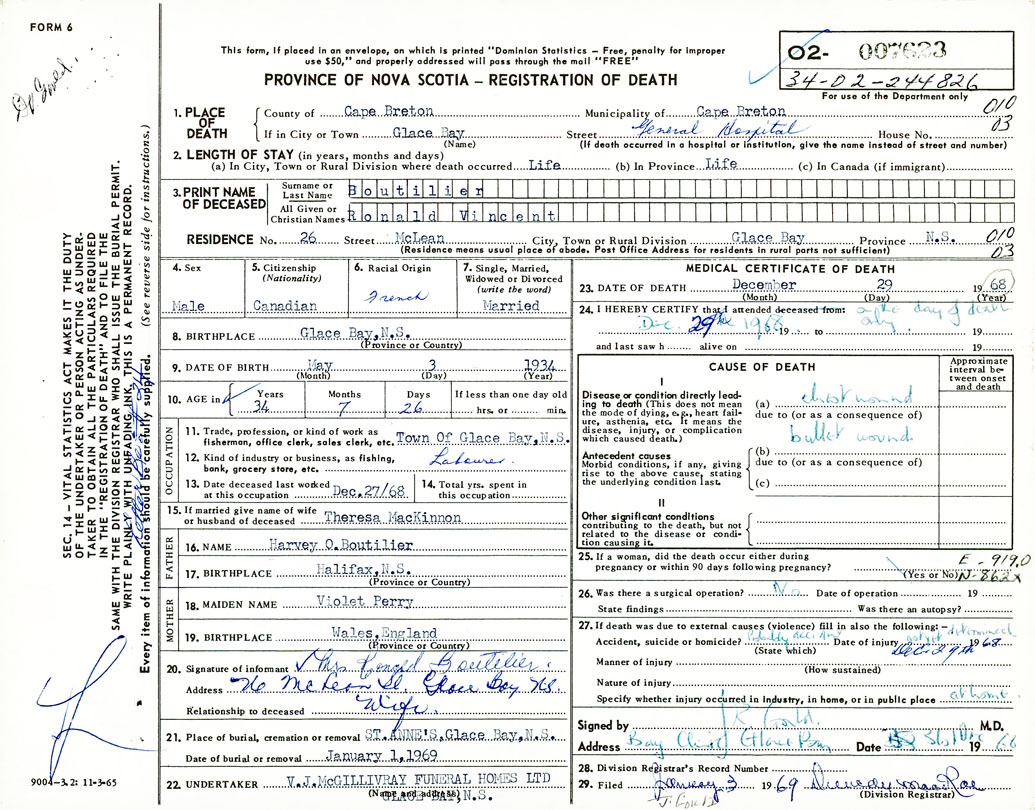 FORM 6
Dr Gould.
This form, if placed in an envelope, on which is printed "Dominion Statistics – Free, penalty for improper
use $50," and properly addressed will pass through the mail "FREE"
PROVINCE OF NOVA SCOTIA – REGISTRATION OF DEATH
02- 007623
34-02-244826
For use of the Department only
010
03
1. PLACE OF DEATH
County of Cape Breton Municipality of Cape Breton
If in City or Town Glace Bay Street General Hospital House No.
(Name) (If death occurred in a hospital or institution, give the name instead of street and number)
2. LENGTH OF STAY (in years, months and days)
(a) In City, Town or Rural Division where death occurred Life (b) In Province Life (c) In Canada (if immigrant)
3. PRINT NAME OF DECEASED
Surname or Last Name Boutilier
All Given or Christian Names Ronald Vincent
RESIDENCE No. 26 Street McLean City, Town or Rural Division Glace Bay Province N.S.
(Residence means usual place of abode. Post Office Address for residents in rural parts not sufficient)
010
03
4. Sex
Male
5. Citizenship
(Nationality)
Canadian
6. Racial Origin
French
7. Single, Married,
Widowed or Divorced
(write the word)
Married
8. BIRTHPLACE Glace Bay, N.S.
(Province or Country)
9. DATE OF BIRTH May 3 1934
(Month) (Day) (Year)
10. AGE in
Years Months Days If less than one day old
34 7 26 hrs. or min.
OCCUPATION
11. Trade, profession, or kind of work as
fisherman, office clerk, sales clerk, etc. Town Of Glace Bay, N.S.
12. Kind of industry or business, as fishing,
bank, grocery store, etc. Labourer.
13. Date deceased last worked
at this occupation Dec.27/68
14. Total yrs. spent in
this occupation
15. If married give name of wife
or husband of deceased Theresa MacKinnon
FATHER
16. NAME Harvey O.Boutilier
17. BIRTHPLACE Halifax,N.S.
(Province or Country)
MOTHER
18. MAIDEN NAME Violet Perry
19. BIRTHPLACE Wales,England
(Province or Country)
20. Signature of informant Mrs Ronald Boutilier.
Address 26 McLean St. Glace Bay NS.
Relationship to deceased Wife.
21. Place of burial, cremation or removal ST.ANNE'S,Glace Bay,N.S.
Date of burial or removal January 1,1969
22. UNDERTAKER V.J.McGILLIVRAY FUNERAL HOMES LTD
(Name and address)
GLACE BAY,N.S.
MEDICAL CERTIFICATE OF DEATH
23. DATE OF DEATH December 29 1968
(Month) (Day) (Year)
24. I HEREBY CERTIFY that I attended deceased from: on the day of death
Dec. 29th 1968 19 to only 19
and last saw h alive on 19
CAUSE OF DEATH
Approximate
interval be-
tween onset
and death
I
Disease or condition directly lead-
ing to death (This does not mean
the mode of dying, e.g., heart fail-
ure, asthenia, etc. It means the
disease, injury, or complication
which caused death.)
(a) chest wound
due to (or as a consequence of)
bullet wound
Antecedent causes
Morbid conditions, if any, giving
rise to the above cause, stating
the underlying condition last.
(b)
due to (or as a consequence of)
(c)
II
Other significant conditions
contributing to the death, but not
related to the disease or condi-
tion causing it.
25. If a woman, did the death occur either during
pregnancy or within 90 days following pregnancy?
(Yes or No)
E - 919.0
N-862X
26. Was there a surgical operation? No Date of operation 19
State findings Was there an autopsy?
27. If death was due to external causes (violence) fill in also the following: –
not yet determined
Accident, suicide or homicide? Date of injury Dec. 29th 1968
(State which)
Manner of injury
(How sustained)
Nature of injury
Specify whether injury occurred in industry, in home, or in public place at home.
Signed by Gould. M.D.
Address Bay Clinic Glace Bay Date 31st Dec 1968
28. Division Registrar's Record Number
29. Filed January 3 1969
(Division Registrar)
J. Gould
SEC. 14 – VITAL STATISTICS ACT MAKES IT THE DUTY
OF THE UNDERTAKER OR PERSON ACTING AS UNDER-
TAKER TO OBTAIN ALL THE PARTICULARS REQUIRED
IN THE "REGISTRATION OF DEATH" AND TO FILE THE
SAME WITH THE DIVISION REGISTRAR WHO SHALL ISSUE THE BURIAL PERMIT.
WRITE PLAINLY WITH UNFADING INK, THIS IS A PERMANENT RECORD.
Every item of information should be carefully supplied. (See reverse side for instructions.)
9004-3.2: 11-3-65